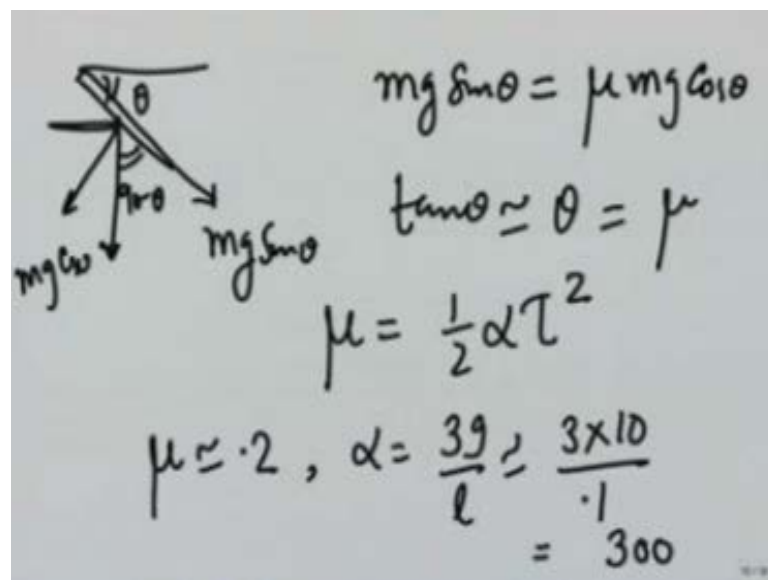 θ
90-θ
mg sinθ
mg sinθ = μ mg cosθ
tanθ ≃ θ = μ
μ = 1/2 α τ²
μ ≃ .2 , α = 3g/l ≃ 3×10/.1
= 300